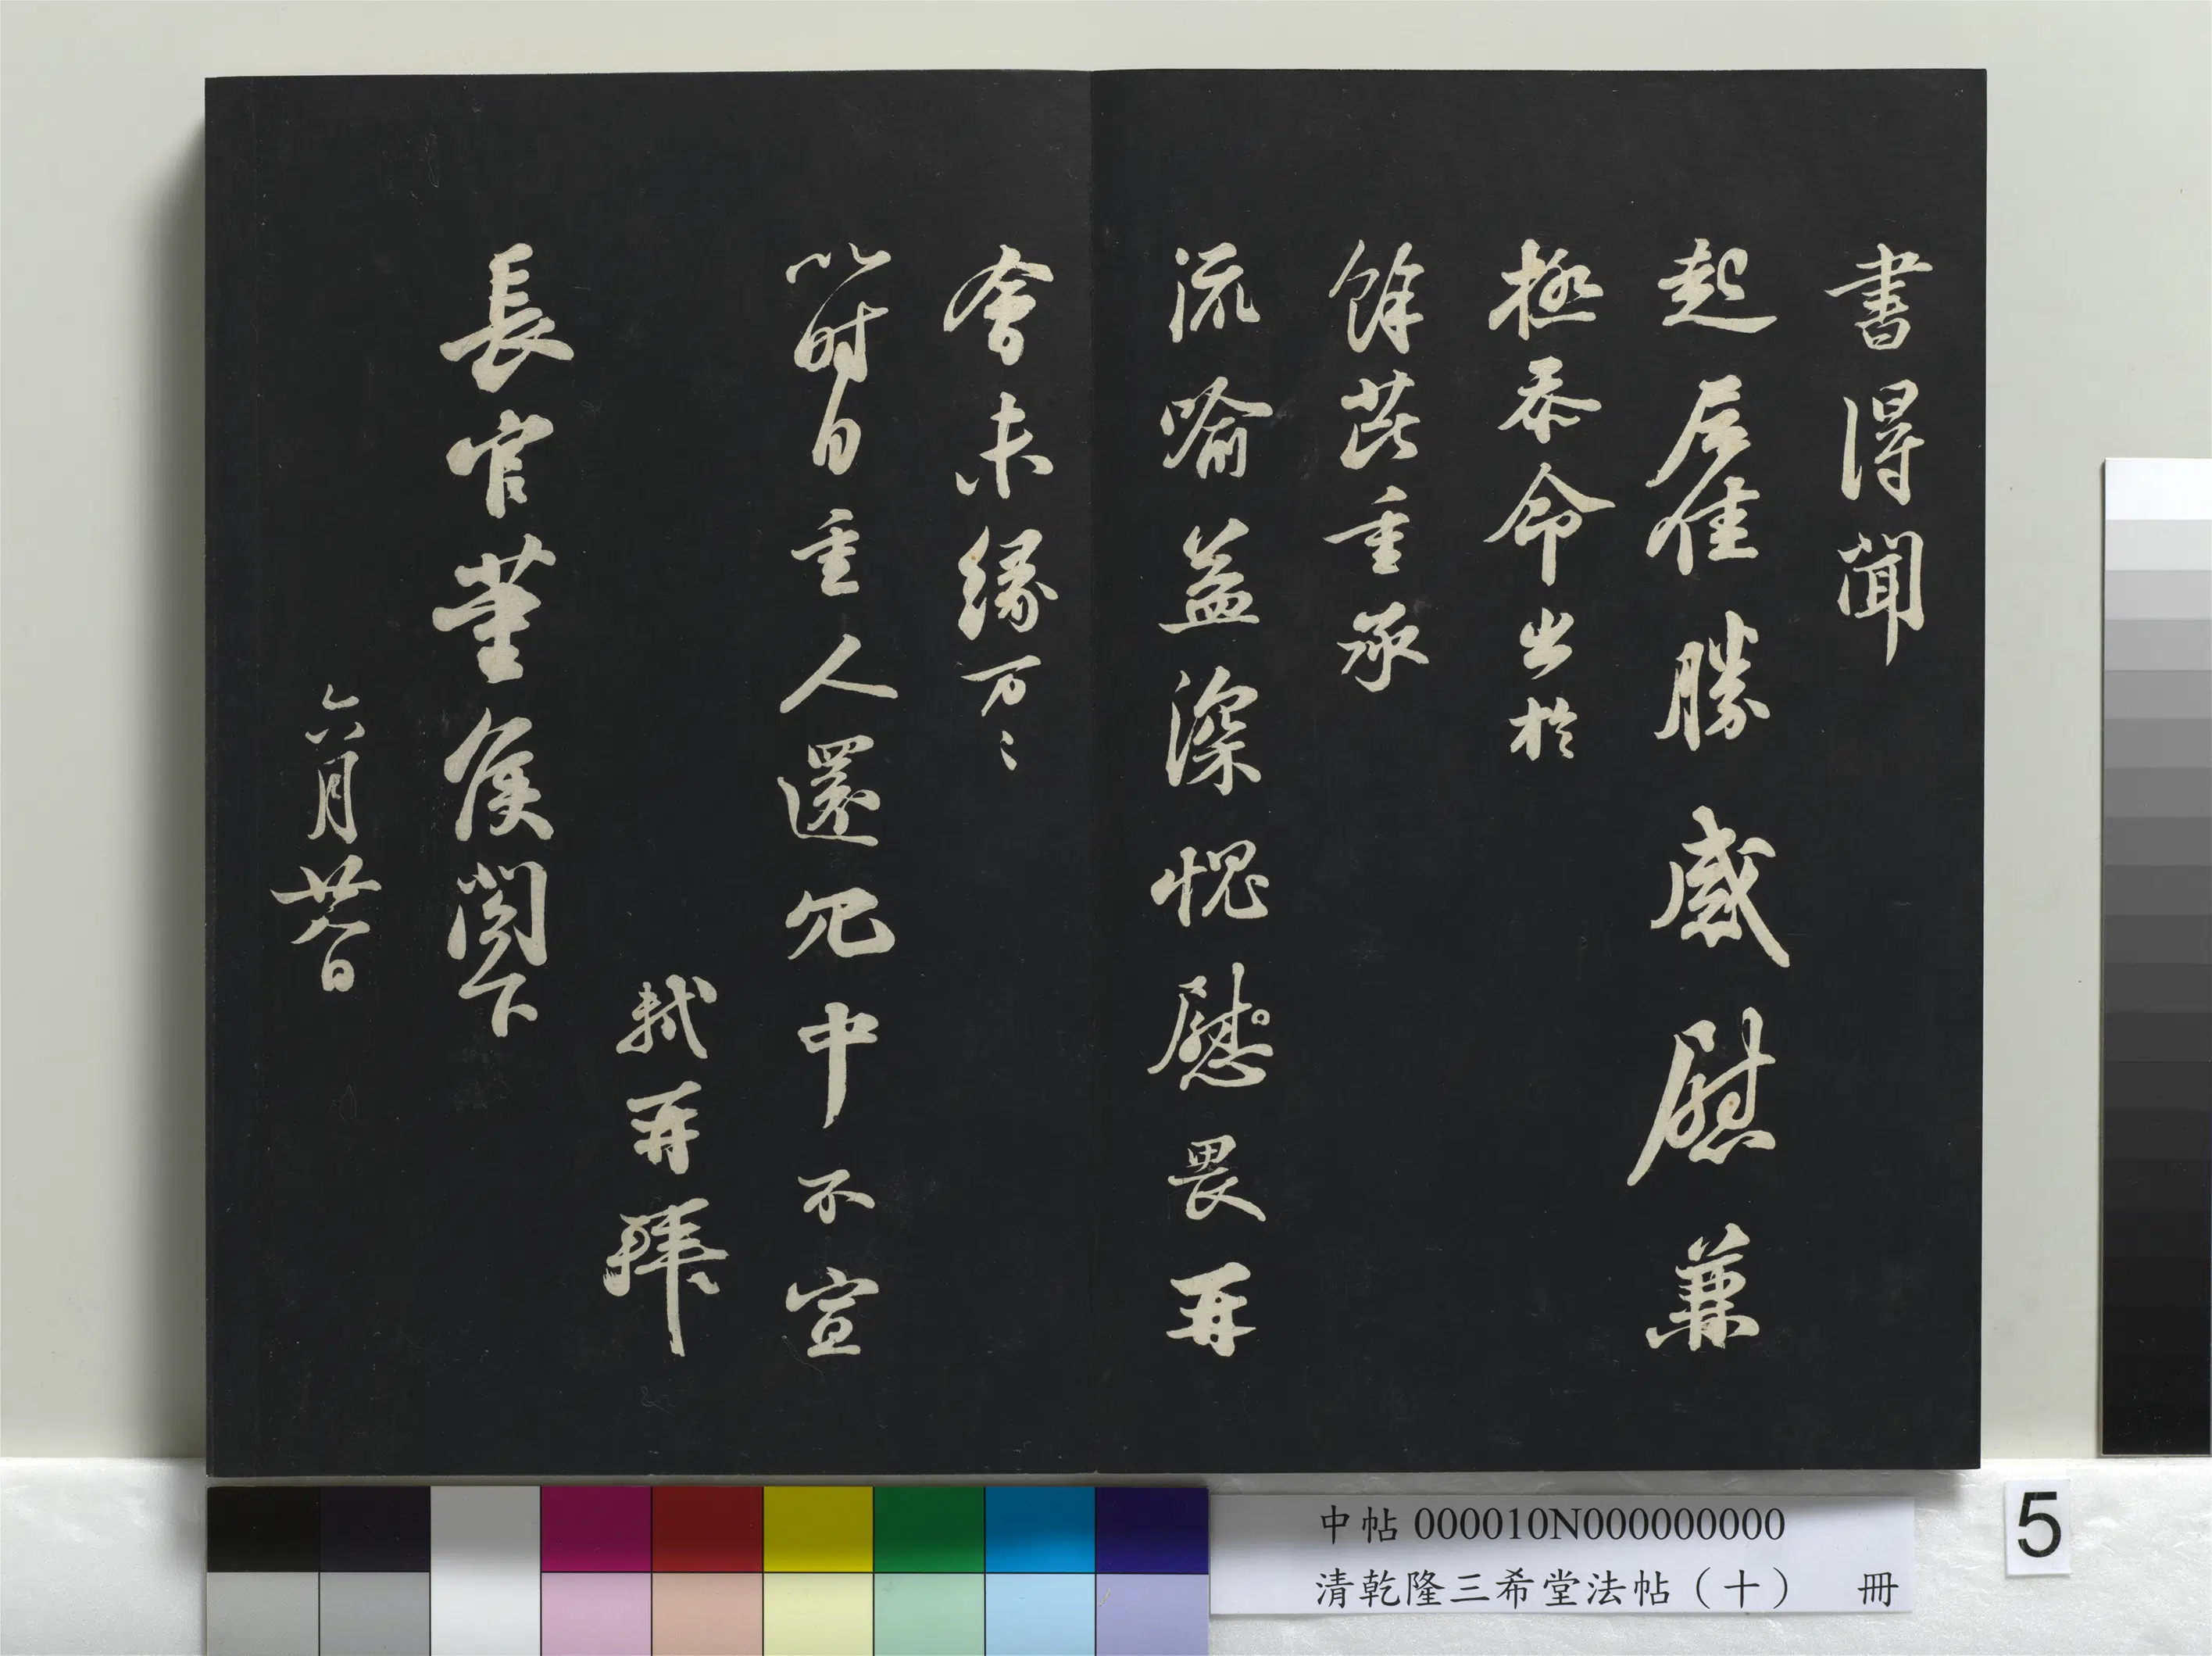 書得聞
起居佳勝感慰兼
極忝命出於
餘芘重承
流喻益深愧慰畏再
會未緣万〻
以時自重人還冗中不宣
軾再拜
長官董侯閣下
六月廿八日
中帖 000010N000000000
清乾隆三希堂法帖（十） 冊
5